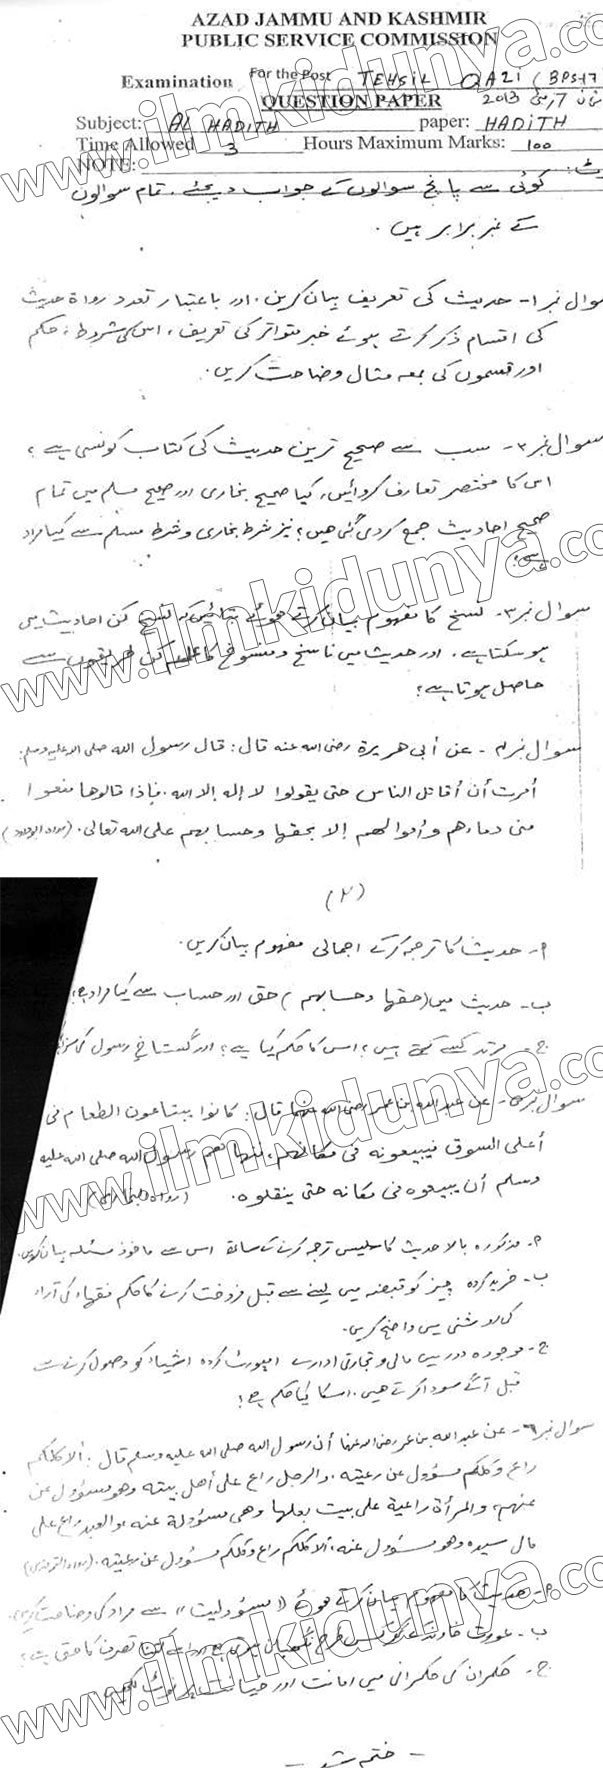 AZAD JAMMU AND KASHMIR
PUBLIC SERVICE COMMISSION
Examination For the Post TEHSIL QAZI (BPS-17)
QUESTION PAPER 2013
Subject: AL HADITH paper: HADITH
Time Allowed 3 Hours Maximum Marks: 100
NOTE:
کوئی سے پانچ سوالوں کے جواب دیجئے۔ تمام سوالوں
کے نمبر برابر ہیں۔
سوال نمبر ۱- حدیث کی تعریف بیان کریں۔ اور باعتبار تعدد رواۃ حدیث
کی اقسام ذکر کرتے ہوئے خبر متواتر کی تعریف، اس کی شروط، حکم
اور قسموں کی بمعہ مثال وضاحت کریں۔
سوال نمبر ۲- سب سے صحیح ترین حدیث کی کتاب کونسی ہے؟
اس کا مختصر تعارف کروائیں، کیا صحیح بخاری اور صحیح مسلم میں تمام
صحیح احادیث جمع کر دی گئی ھیں؟ نیز شرط بخاری و شرط مسلم سے کیا مراد
ہے؟
سوال نمبر ۳- نسخ کا مفہوم بیان کرتے ھوئے بتائیں کہ نسخ کن احادیث میں
ہو سکتا ہے۔ اور حدیث میں ناسخ و منسوخ کا علم کن طریقوں سے
حاصل ہوتا ہے؟
سوال نمبر ۴- عن أبی ھریرة رضی اللہ عنه قال: قال رسول اللہ صلی اللہ علیہ وسلم:
أمرت أن أقاتل الناس حتی یقولوا لا إله إلا اللہ، فإذا قالوھا منعوا
منی دماءھم وأموالھم إلا بحقھا وحسابھم علی اللہ تعالی۔ (رواہ ابوداود)
(۲)
۱- حدیث کا ترجمہ کر کے اجمالی مفہوم بیان کریں۔
ب- حدیث میں (حقھا وحسابھم) حق اور حساب سے کیا مراد ہے؟
ج- مرتد کسے کہتے ہیں؟ اس کا حکم کیا ہے؟ اور گستاخ رسول کی
سوال نمبر ۵- عن عبد اللہ بن عمر رضی اللہ عنھما قال: کانوا یبتاعون الطعام فی
أعلی السوق فیبیعونه فی مکانھم، فنھاھم رسول اللہ صلی اللہ علیه
وسلم أن یبیعوہ فی مکانه حتی ینقلوہ۔ (رواہ البخاری)
۱- مذکورہ بالا حدیث کا سلیس ترجمہ کرنے کے ساتھ اس سے ماخوذ مسئلہ بیان کریں۔
ب- خرید کردہ چیز کو قبضہ میں لینے سے قبل فروخت کرنے کا حکم فقہاء کی آراء
کی روشنی میں واضح کریں۔
ج- موجودہ دور میں مالی و تجارتی ادارے امپورٹ کردہ اشیاء کو وصول کرنے سے
قبل آگے سودا کرتے ھیں۔ اسکا کیا حکم ہے؟
سوال نمبر ۶- عن عبد اللہ بن عمر رضی اللہ عنھما أن رسول اللہ صلی اللہ علیه وسلم قال: ألا کلکم
راع وکلکم مسؤول عن رعیته، والرجل راع علی أھل بیته وھو مسؤول عن
عنھم، والمرأة راعیة علی بیت بعلھا وھی مسؤولة عنه، والعبد راع علی
مال سیدہ وھو مسؤول عنه، ألا کلکم راع وکلکم مسؤول عن رعیته۔ (رواہ الترمذی)
۱- حدیث کا مفہوم بیان کرتے ھوئے "مسؤولیت" سے مراد کی وضاحت کریں۔
ب- عورت خاوند کے گھر کی کس طرح نگھبان ہے اور اسے کتنا تصرف کا حق ہے؟
ج- حکمران کی حکمرانی میں امانت اور خیانت پر نوٹ لکھیں۔
- ختم شد -
www.ilmkidunya.com